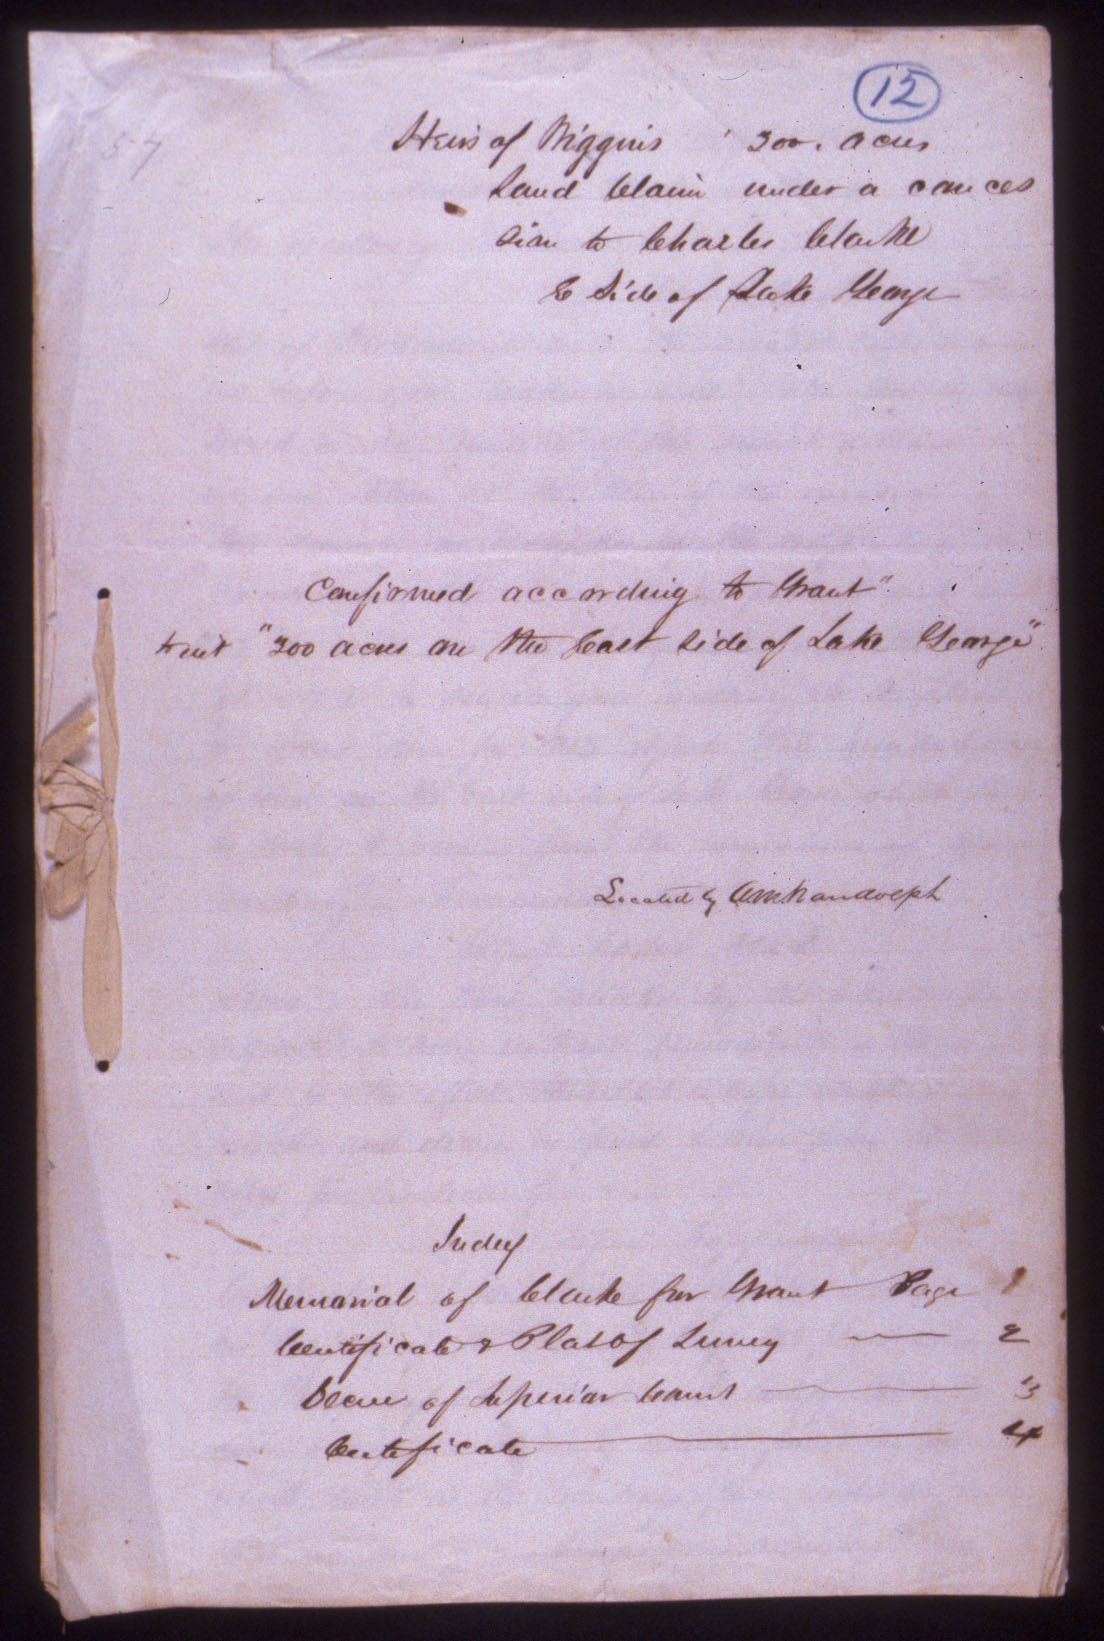 12
57
Heirs of Wiggins 300. acres
Land Claim under a conces
sion to Charles Clarke
E Side of Lake George
Confirmed according to Grant"
to wit "300 acres on the East side of Lake George"
Located by A M Randolph
Index
Memorial of Clarke for Grant Page 1
Certificate & Plat of Survey 2
Decree of Superior Court 3
Certificate 4